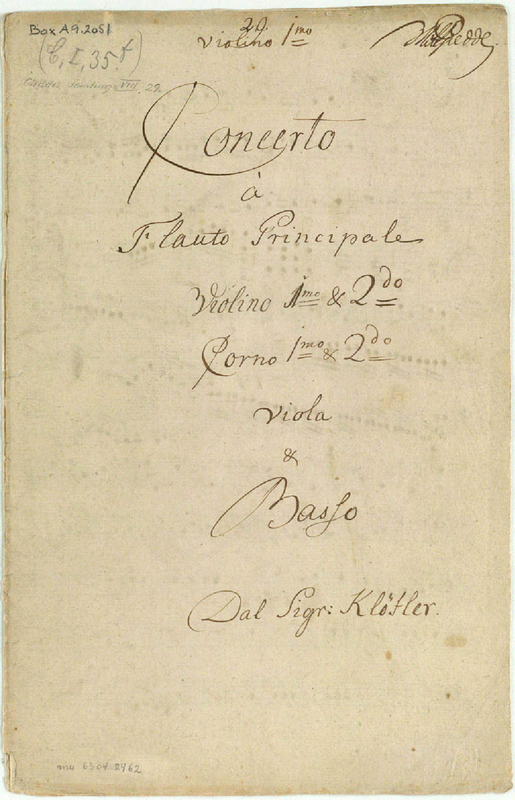 Box A9.2051
(C, I, 35.)
29.
Violino 1mo
VIII, 29
Concerto
à
Flauto Principale
Violino 1mo & 2do
Corno 1mo & 2do
Viola
&
Basso
Dal Sigr: Klötler.
mu 6304.2462